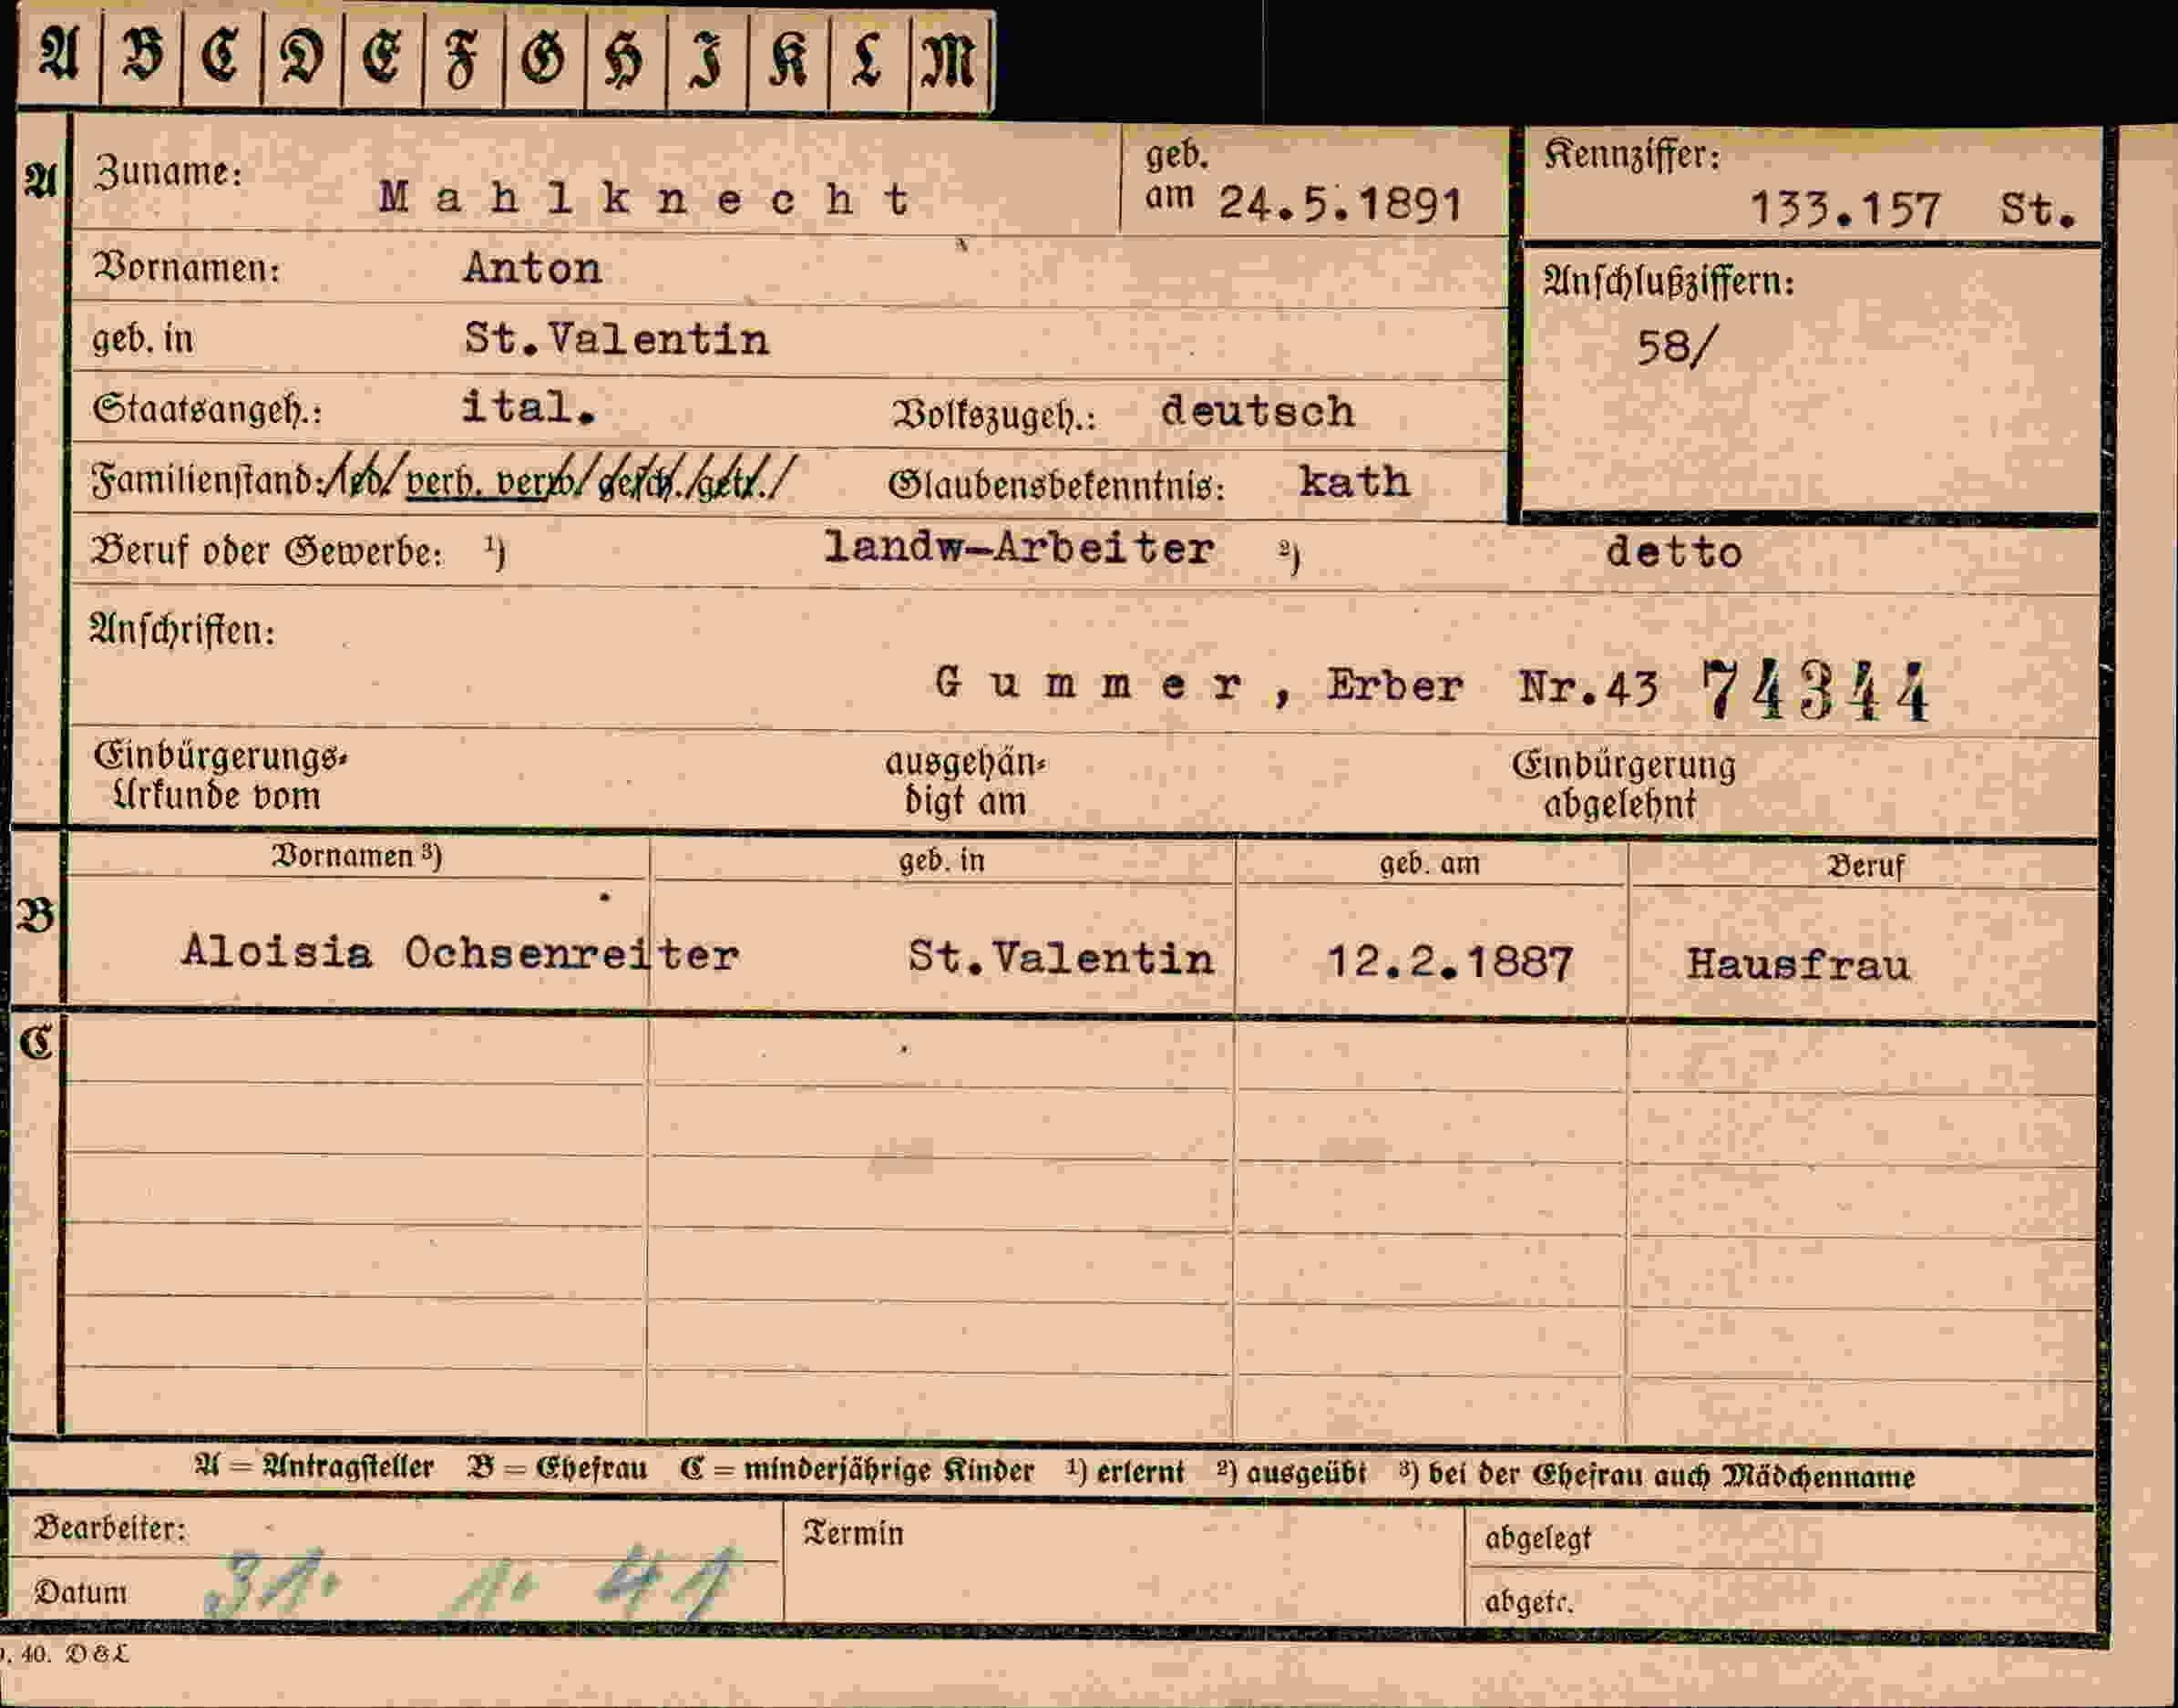 A B C D E F G H I K L M
A Zuname: Mahlknecht geb. am 24.5.1891 Kennziffer: 133.157 St.
Vornamen: Anton Anschlußziffern:
geb. in St.Valentin 58/
Staatsangeh.: ital. Volkszugeh.: deutsch
Familienstand: /led/ verh. verw/ gesch./getr./ Glaubensbekenntnis: kath
Beruf oder Gewerbe: ¹) landw-Arbeiter ²) detto
Anschriften:
Gummer, Erber Nr.43 74344
Einbürgerungs- ausgehän- Einbürgerung
Urkunde vom digt am abgelehnt
Vornamen ³) geb. in geb. am Beruf
B Aloisia Ochsenreiter St.Valentin 12.2.1887 Hausfrau
C
A = Antragsteller B = Ehefrau C = minderjährige Kinder ¹) erlernt ²) ausgeübt ³) bei der Ehefrau auch Mädchenname
Bearbeiter: Termin abgelegt
Datum 31. 1. 41 abgetr.
. 40. D & L